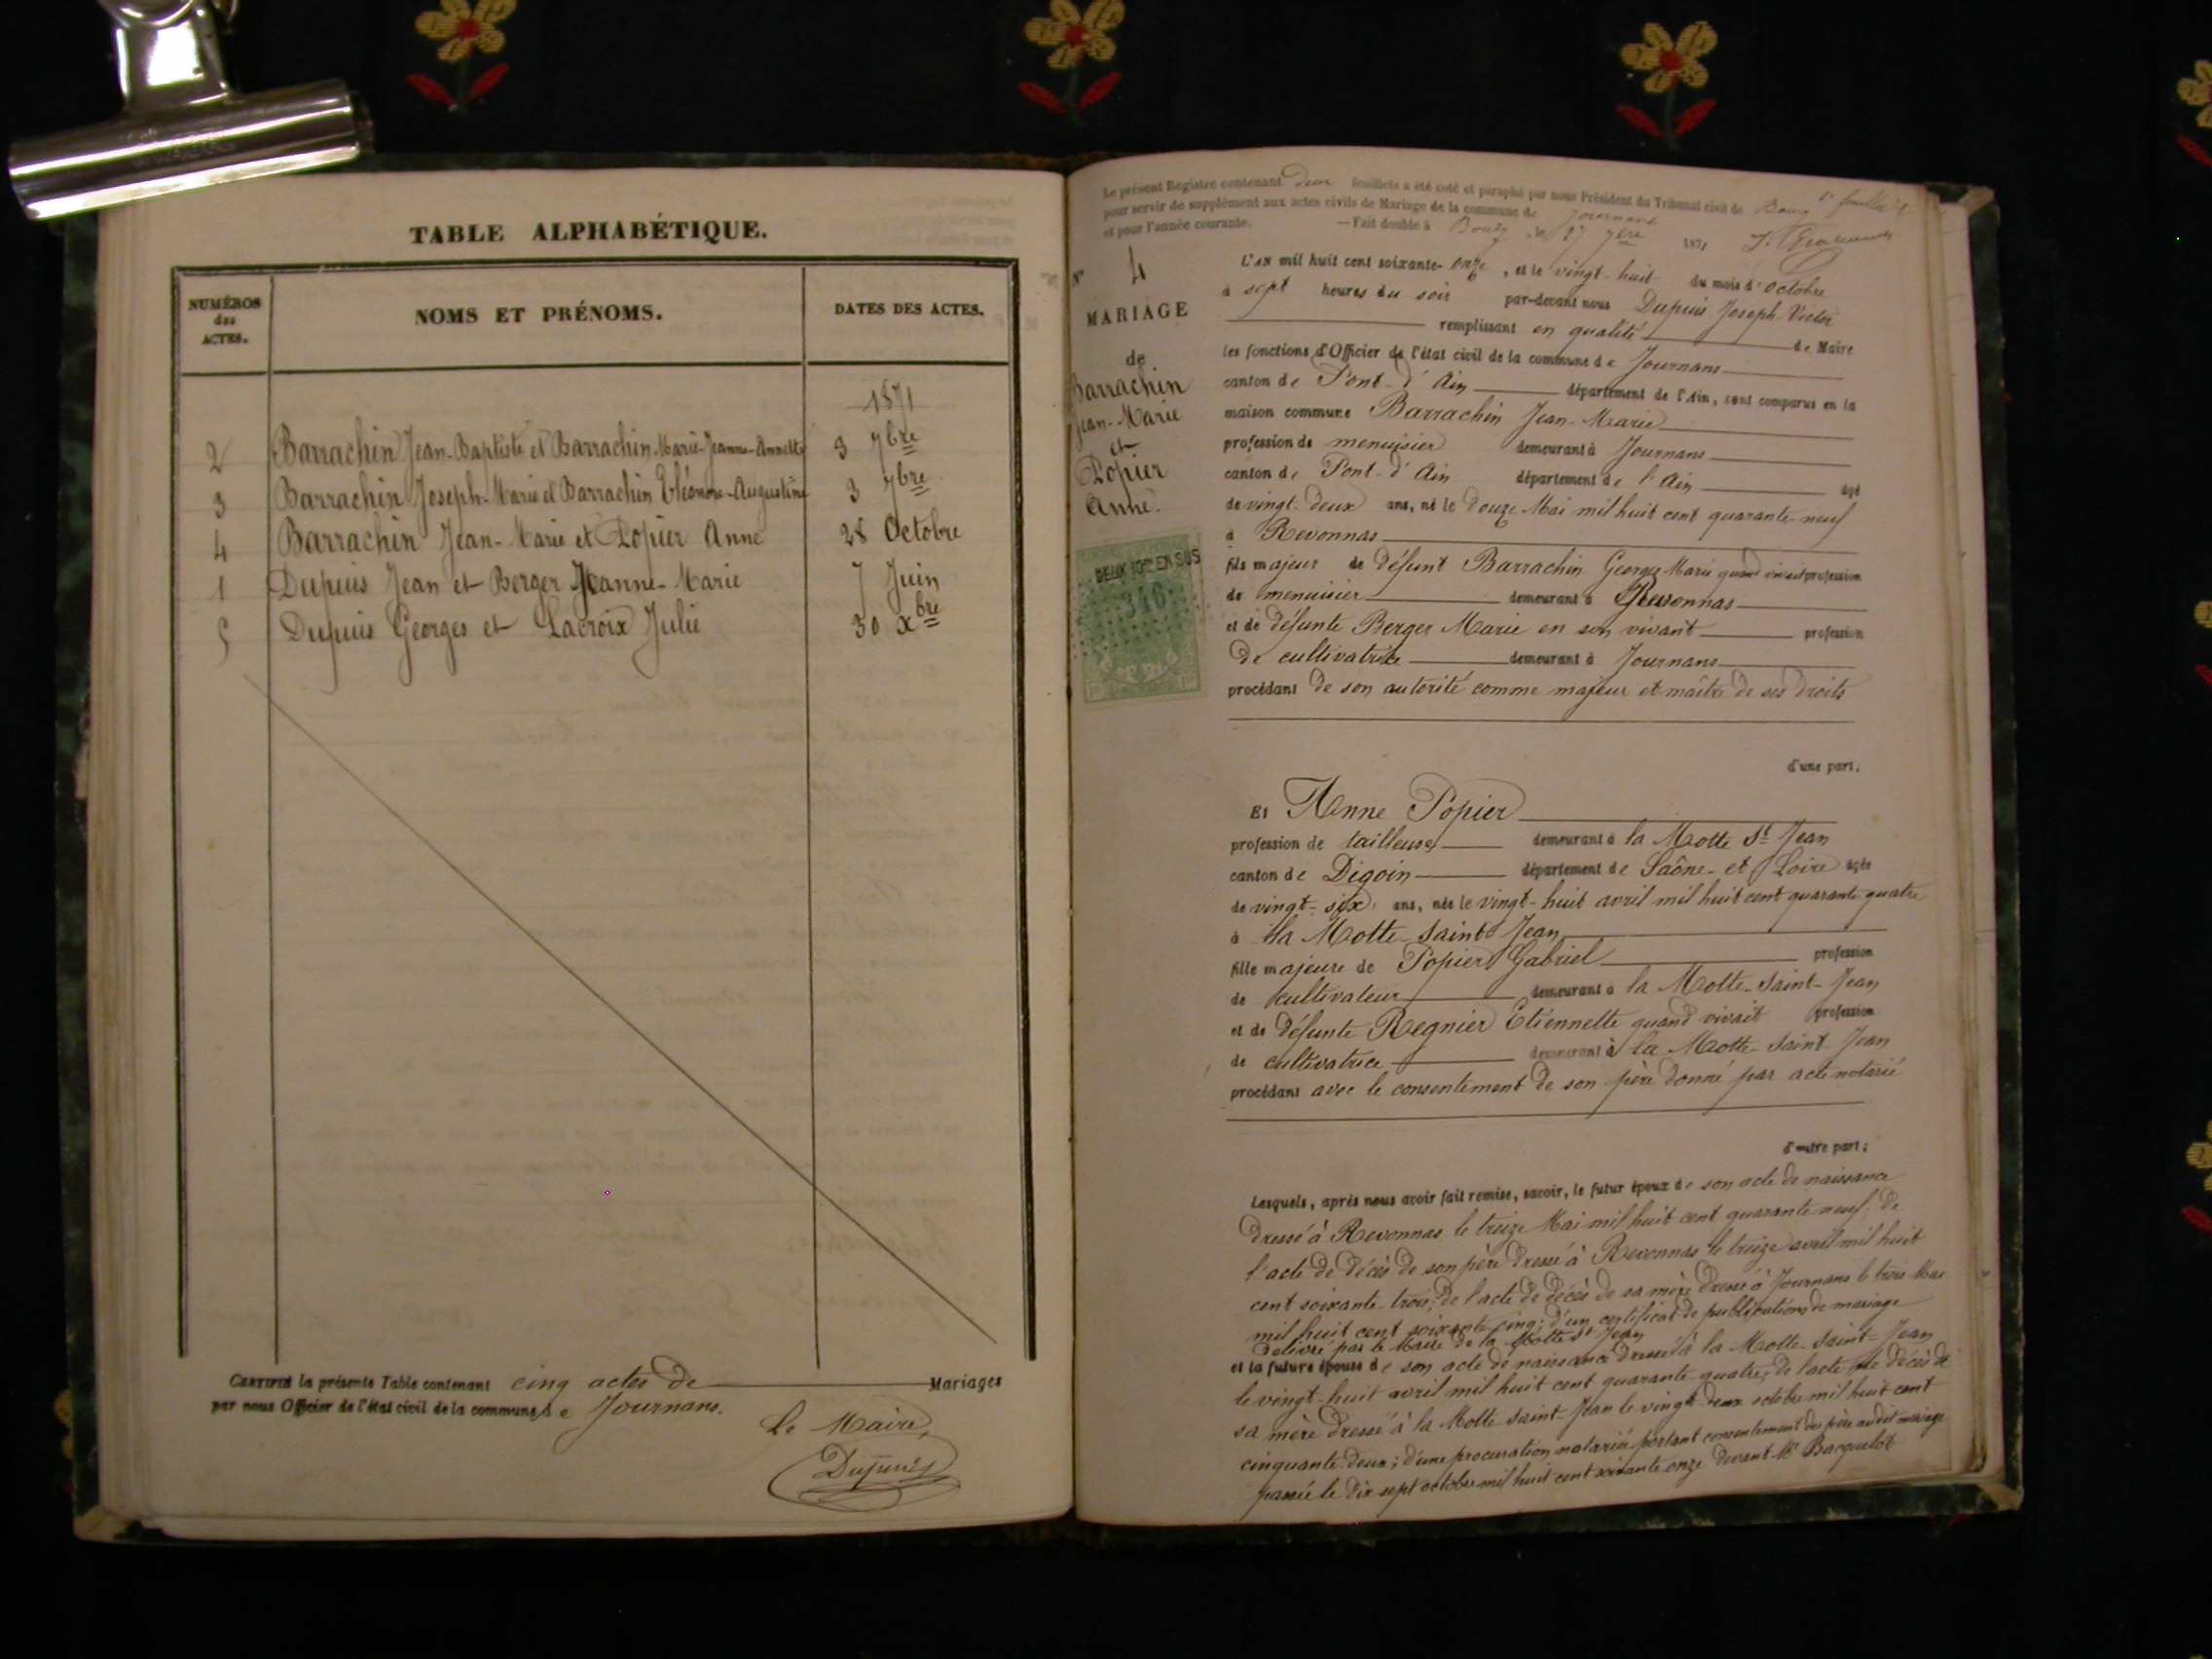 TABLE ALPHABÉTIQUE.
NUMÉROS
des
ACTES.
NOMS ET PRÉNOMS.
DATES DES ACTES.
1871
2 Barrachin Jean-Baptiste et Barrachin Marie-Jeanne-Annette 3 7bre
3 Barrachin Joseph-Marie et Barrachin Eléonore-Augustine 3 7bre
4 Barrachin Jean-Marie et Popier Anne 28 Octobre
1 Dupuis Jean et Berger Jeanne-Marie 7 Juin
5 Dupuis Georges et Lacroix Julie 30 Xbre
CERTIFIÉ la présente Table contenant cinq actes de Mariages
par nous Officier de l'état civil de la commune de Journans.
Le Maire,
Dupuis
Le présent Registre contenant deux feuillets a été coté et paraphé par nous Président du Tribunal civil de Bourg
pour servir de supplément aux actes civils de Mariage de la commune de Journans
et pour l'année courante. — Fait double à Bourg, le 27 7bre 1871
1er feuillet
N° 4
MARIAGE
de
Barrachin
Jean-Marie
et
Popier
Anne.
DEUX 10es EN SUS
346
L'AN mil huit cent soixante-onze, et le vingt-huit du mois d'octobre
à sept heures du soir par-devant nous Dupuis Joseph-Victor
remplissant en qualité de Maire
les fonctions d'Officier de l'état civil de la commune de Journans
canton de Pont-d'Ain département de l'Ain, sont comparus en la
maison commune Barrachin Jean-Marie
profession de menuisier demeurant à Journans
canton de Pont-d'Ain département de l'Ain âgé
de vingt-deux ans, né le douze Mai mil huit cent quarante-neuf
à Revonnas
fils majeur de défunt Barrachin Georges Marie quand vivait profession
de menuisier demeurant à Revonnas
et de défunte Berger Marie en son vivant profession
de cultivatrice demeurant à Journans
procédant de son autorité comme majeur et maître de ses droits
d'une part;
Et Anne Popier
profession de tailleuse demeurant à la Motte St Jean
canton de Digoin département de Saône-et-Loire âgée
de vingt-six ans, née le vingt-huit avril mil huit cent quarante-quatre
à la Motte-Saint-Jean
fille majeure de Popier Gabriel profession
de cultivateur demeurant à la Motte-Saint-Jean
et de défunte Regnier Etiennette quand vivait profession
de cultivatrice demeurant à la Motte-Saint-Jean
procédant avec le consentement de son père donné par acte notarié
d'autre part;
Lesquels, après nous avoir fait remise, savoir, le futur époux de son acte de naissance
dressé à Revonnas le treize Mai mil huit cent quarante neuf. De
l'acte de décès de son père dressé à Revonnas le treize avril mil huit
cent soixante-trois; de l'acte de décès de sa mère dressé à Journans le trois Mai
mil huit cent soixante cinq; d'un certificat de publications de mariage
délivré par le Maire de la Motte St Jean
et la future épouse de son acte de naissance dressé à la Motte-Saint-Jean
le vingt-huit avril mil huit cent quarante quatre; de l'acte de décès de
sa mère dressé à la Motte-Saint-Jean le vingt-deux octobre mil huit cent
cinquante-deux; d'une procuration notariée portant consentement du père au dit mariage
passée le dix sept octobre mil huit cent soixante-onze devant Me Bacquelot